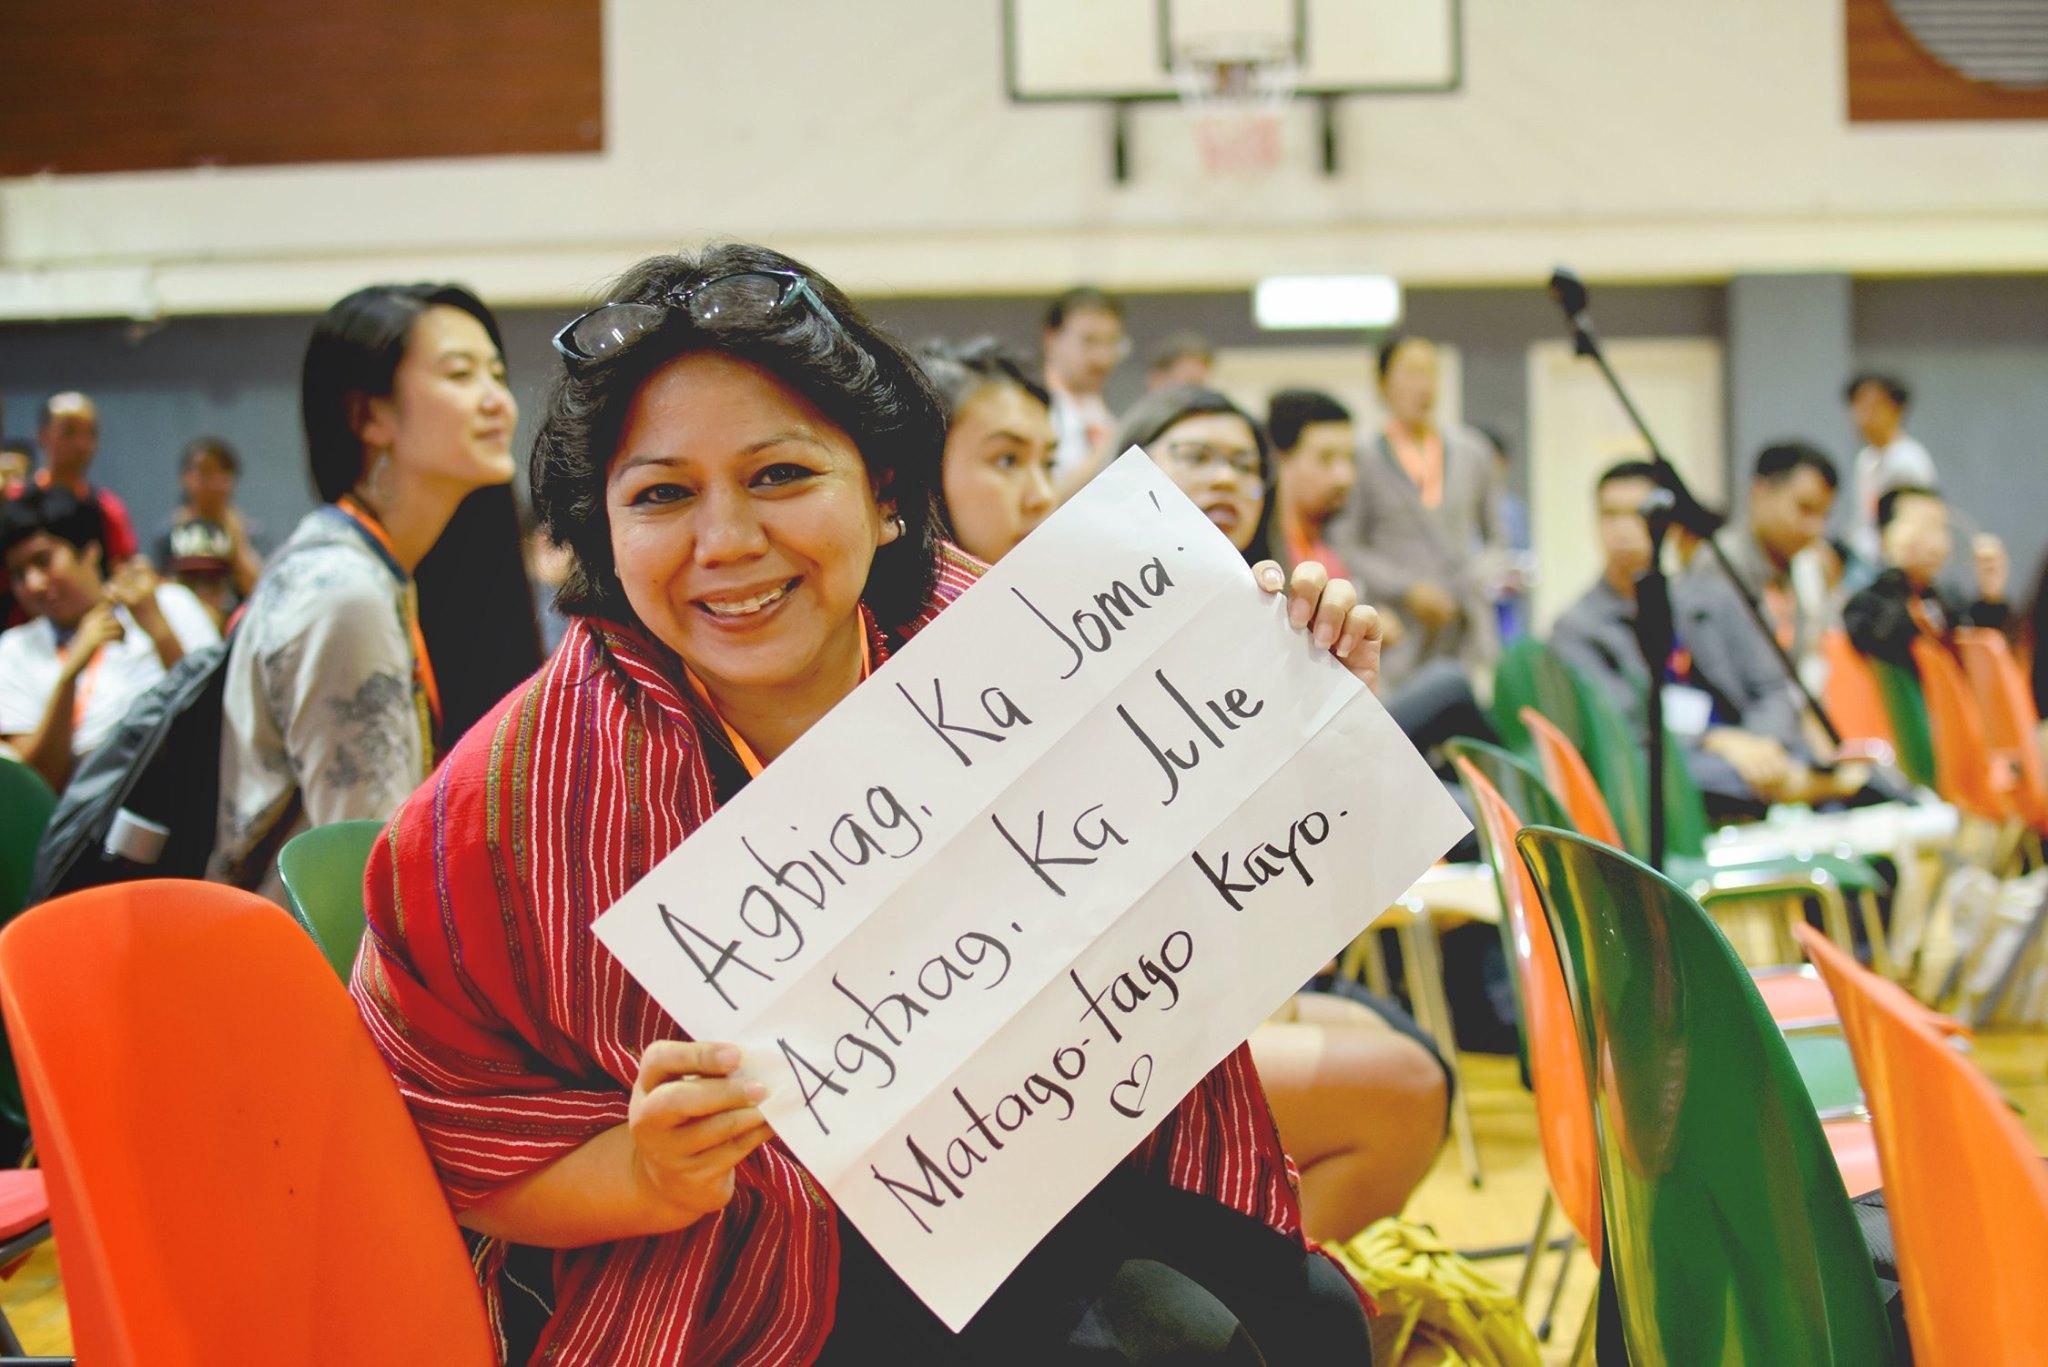 Agbiag, Ka Joma!
Agbiag, Ka Julie
Matago-tago kayo.